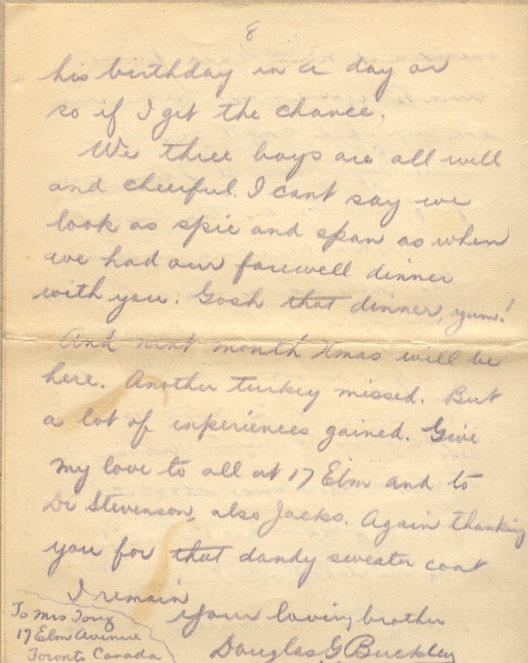 8
his birthday in a day or
so if I get the chance.
We three boys are all well
and cheerful. I cant say we
look as spic and span as when
we had our farewell dinner
with you. Gosh that dinner, yum!
And next month Xmas will be
here. Another turkey missed. But
a lot of experiences gained. Give
my love to all at 17 Elm and to
Dr Stevenson, also Jacks. Again thanking
you for that dandy sweater coat
I remain
Your loving brother
Douglas G Buckley
To Mrs
17 Elm Avenue
Toronto Canada